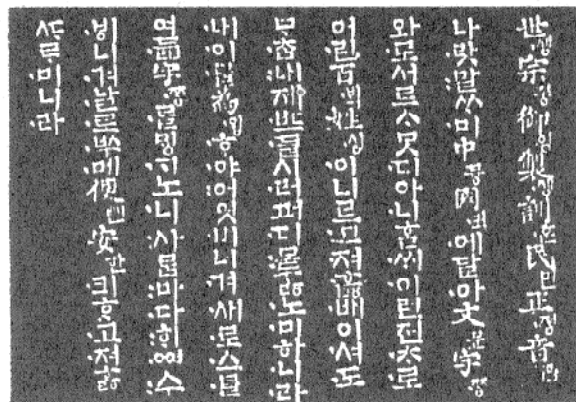 世솅宗종御엉製졩訓훈民민正졍音흠
나랏말ᄊᆞ미中듕國귁에달아文문字ᄍᆞᆼ
와로서르ᄉᆞᄆᆞᆺ디아니ᄒᆞᆯᄊᆡ이런젼ᄎᆞ로
어린百ᄇᆡᆨ姓셩이니르고져호ᇙ배이셔도
ᄆᆞᄎᆞᆷ내제ᄠᅳ들시러펴디몯ᄒᆞᇙ노미하니라
내이ᄅᆞᆯ為윙ᄒᆞ야어엿비너겨새로스믈
여듧字ᄍᆞᆼᄅᆞᆯᄆᆡᇰᄀᆞ노니사ᄅᆞᆷ마다ᄒᆡᅇᅧ수
ᄫᅵ니겨날로ᄡᅮ메便뼌安한킈ᄒᆞ고져ᄒᆞᇙ
ᄯᆞᄅᆞ미니라